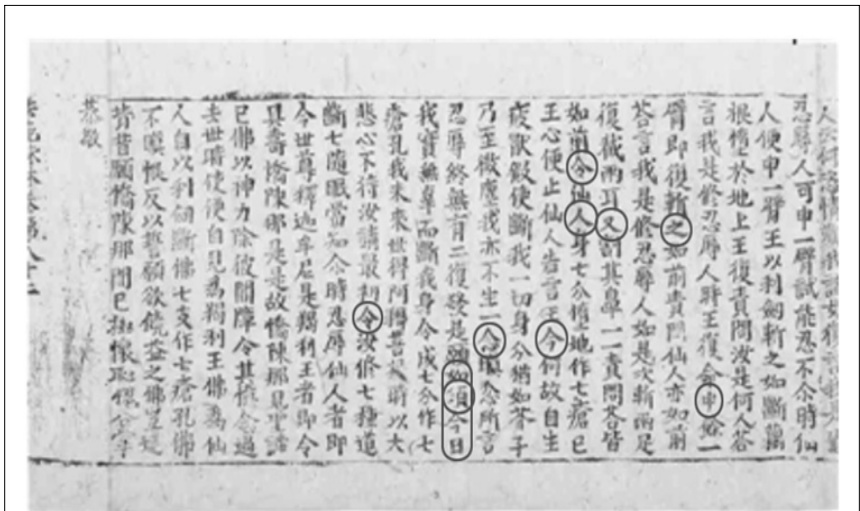 忍辱人可申一臂試能忍不尒時仙
人便申一臂王以利劒斬之如斷藕
根墮於地上王復責問汝是何人答
言我是修忍辱人時王復命申餘一
臂即復斬之如前責問仙人亦如前
荅言我是修忍辱人如是次斬兩足
復截兩耳又割其鼻一一責問荅皆
如前令仙人身七分墮地作七瘡已
王心便止仙人告言王今何故自生
疲猒假使斷我一切身分猶如芥子
乃至微塵我亦不生一念瞋忿所言
忍辱終無有二復發是願如須今日
我實無辜而斷我身令成七分作七
瘡孔我未來世得阿耨菩提時以大
悲心不待汝請最初令汝修七種道
斷七隨眠當知尒時忍辱仙人者即
今世尊釋迦牟尼是羯利王者即今
具壽憍陳那是是故憍陳那見聖諦
已佛以神力除彼闇障令其憶念過
去世時使便自見為羯利王佛為仙
人自以利劒斷佛七支作七瘡孔佛
不瞋恨反以誓願欲饒益之佛豈違
背昔願憍陳那聞已極懷恥愧合掌
恭敬